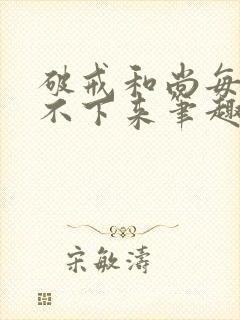 破戒和尚每
不下来笔趣
宋敏涛